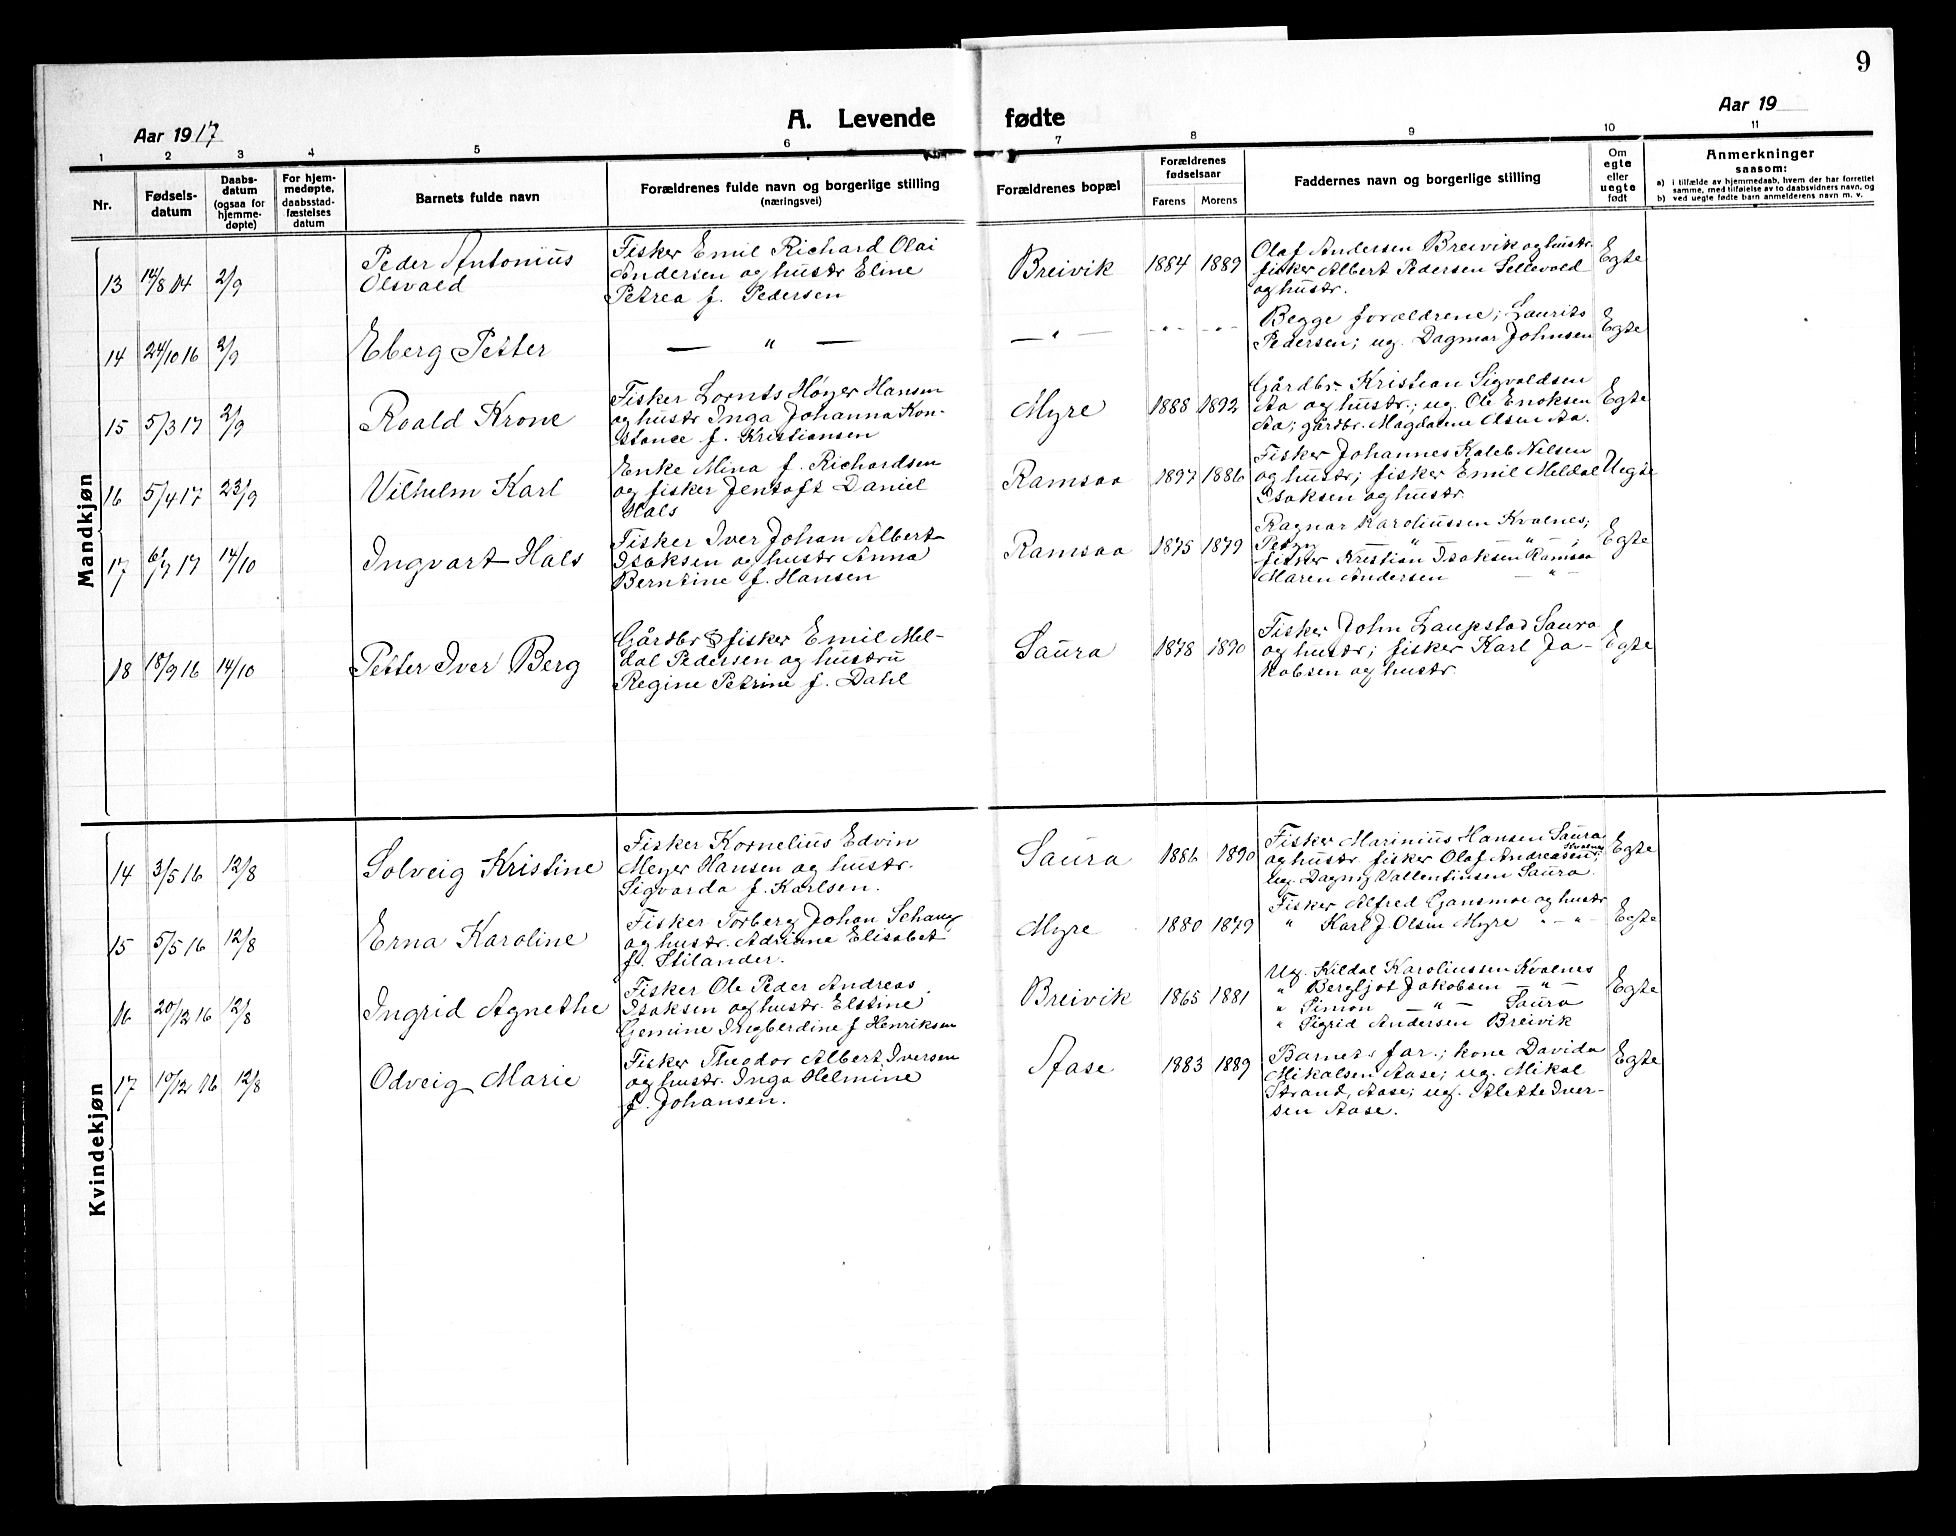 9
Aar 1917
A. Levende fødte
Aar 19
1 2 3 4 5 6 7 8 9 10 11
Nr.
Fødsels-
datum
Daabs-
datum
(ogsaa for
hjemme-
døpte)
For hjem-
medøpte,
daabsstad-
fæstelses
datum
Barnets fulde navn
Forældrenes fulde navn og borgerlige stilling
(næringsvei)
Forældrenes bopæl
Forældrenes
fødselsaar
Farens Morens
Faddernes navn og borgerlige stilling
Om
egte
eller
uegte
født
Anmerkninger
saasom:
a) i tilfælde av hjemmedaab, hvem der har forrettet
samme, med tilføielse av to daabsvidners navn, og
b) ved uegte fødte barn anmelderens navn m. v.
Mandkjøn
13 14/8 14 2/9
Peder Antonius
Olsvald
Fisker Emil Richard Olai
Andersen og hustr Eline
Petrea f. Pedersen
Breivik 1884 1889
Olaf Andersen Breivik og hustr.
fisker Albert Pedersen Sellevold
og hustr.
Egte
14 24/10 16 2/9
Eberg Petter
— " —
— " — - " - - " -
Begge forældrene; Laurits
Pedersen; ug. Dagmar Johnsen
Egte
15 5/3 17 2/9
Roald Krone
Fisker Lornts Høyer Hansen
og hustr Inga Johanna Kon-
stance f. Kristiansen
Myre 1888 1892
Gårdbr. Kristian Sigvaldsen
Aa og hustr.; ug. Ole Enoksen
Aa; gårdbr. Magdalene Olsen Aa.
Egte
16 5/4 17 23/9
Vilhelm Karl
Enke Mina f. Richardsen
og fisker Jentoft Daniel
Hals
Ramsaa 1897 1886
Fisker Johannes Kaleb Nilsen
og hustr; fisker Emil Meldal
Isaksen og hustr.
Uegte
17 6/7 17 14/10
Ingvart Hals
Fisker Iver Johan Albert
Isaksen og hustr Anna
Berntine f. Hansen
Ramsaa 1875 1879
Ragnar Karoliussen Kvalnes;
Petra — " — " — ;
fisker Kristian Isaksen Ramsaa
Maren Andersen — " —
Egte
18 18/9 16 14/10
Petter Iver Berg
Gårdbr & fisker Emil Mel-
dal Pedersen og hustru
Regine Petrine f. Dahl
Saura 1878 1890
Fisker John Laupstad Saura
og hustr; fisker Karl Ja-
kobsen og hustr.
Egte
Kvindekjøn
14 3/5 16 12/8
Solveig Kristine
Fisker Kornelius Edvin
Meyer Hansen og hustr.
Sigvarda f. Karlsen.
Saura 1886 1890
Fisker Marinius Hansen Saura
og hustr. fisker Olaf Andreasen Kvalnes;
ug. Dagny Vallentinsen Saura.
Egte
15 5/5 16 12/8
Erna Karoline
Fisker Torberg Johan Schang
og hustr. Adrinne Elisabet
f. Stilander.
Myre 1880 1879
Fisker Alfred Gansmoe og hustr
" Karl J. Olsen Myre " - " -
Egte
16 20/12 16 12/8
Ingrid Agnethe
Fisker Ole Peder Andreas
Isaksen og hustr. Elstine
Gemine Ingberdine f Henriksen
Breivik 1865 1881
Ug. Kildal Karoliussen Kvalnes
" Bergljot Jakobsen — " —
" Simon " — Saura
" Sigrid Andersen Breivik
Egte
17 10/12 16 12/8
Odveig Marie
Fisker Theodor Albert Iversen
og hustr. Inga Helmine
f. Johansen.
Aase 1883 1889
Barnets far; kone Davida
Mikalsen Aase; ug. Mikal
Strand, Aase; ug. Alette Iver-
sen Aase.
Egte